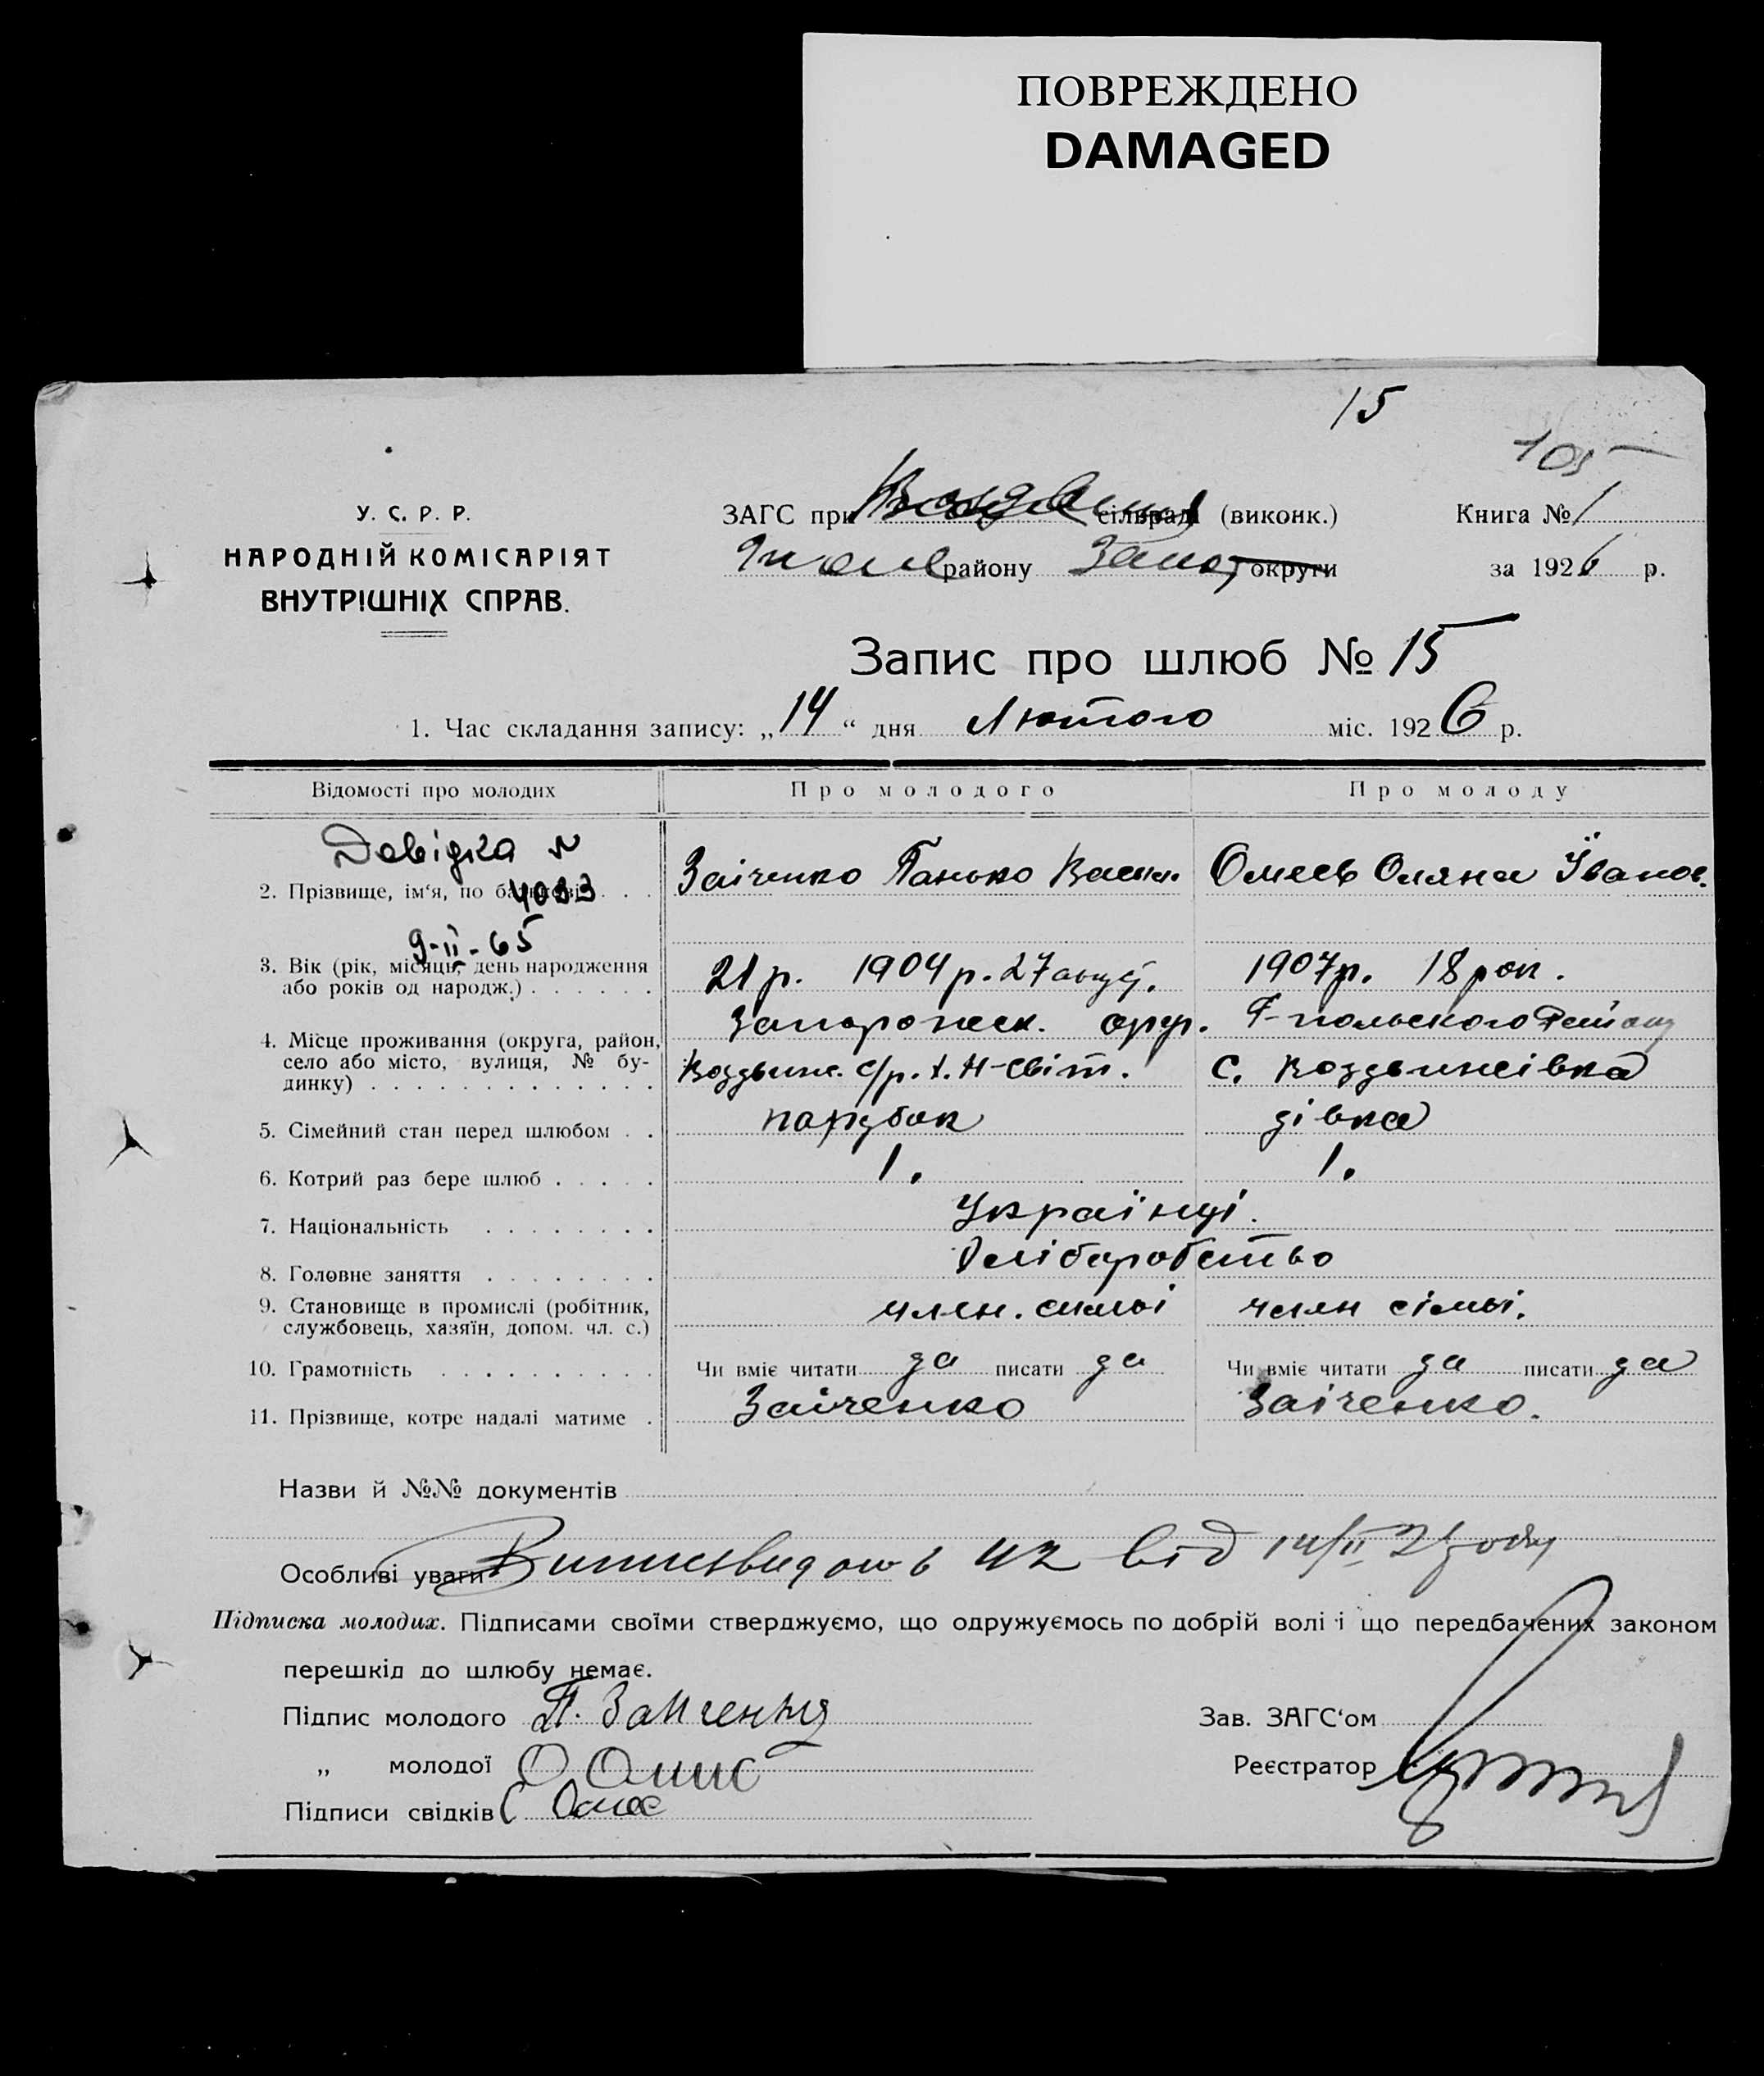 ПОВРЕЖДЕНО
DAMAGED
15
105
У. С. Р. Р.
НАРОДНІЙ КОМІСАРІЯТ
ВНУТРІШНІХ СПРАВ.
ЗАГС при сільраді (виконк.)
району Запор округи
Книга № 1
за 1926 р.
Запис про шлюб № 15
1. Час складання запису: „14“ дня Лютого міс. 1926 р.
Відомості про молодих
Про молодого
Про молоду
Довідка N
4033
9-II-65
2. Прізвище, ім‘я, по батькові . . .
Заіченко Панько Васил.
Омесь Оляна Іванов.
3. Вік (рік, місяць, день народження або років од народж.) . . . . . .
21 р. 1904 р. 27 август.
1907р. 18 рок.
4. Місце проживання (округа, район, село або місто, вулиця, № будинку) . . . . . . . . . . . . .
Запорожск. окр. Г-польского Району
Воздвиж. с/р. х. Н-Світ.
с. Воздвижівка
5. Сімейний стан перед шлюбом . .
парубок
дівка
6. Котрий раз бере шлюб . . . . .
1.
1.
7. Національність . . . . . . . .
Українці.
8. Головне заняття . . . . . . . .
Хліборобство
9. Становище в промислі (робітник, службовець, хазяїн, допом. чл. с.)
член. сімьі
член сімьі.
10. Грамотність . . . . . . . . . .
Чи вміє читати да писати да
Чи вміє читати да писати да
11. Прізвище, котре надалі матиме .
Заіченко
Заіченко.
Назви й №№ документів
Особливі уваги 42 від 14/II
Підписка молодих. Підписами своїми стверджуємо, що одружуємось по добрій волі і що передбачених законом
перешкід до шлюбу немає.
Підпис молодого П.
Зав. ЗАГС‘ом
„ молодої О Омис
Реєстратор
Підписи свідків